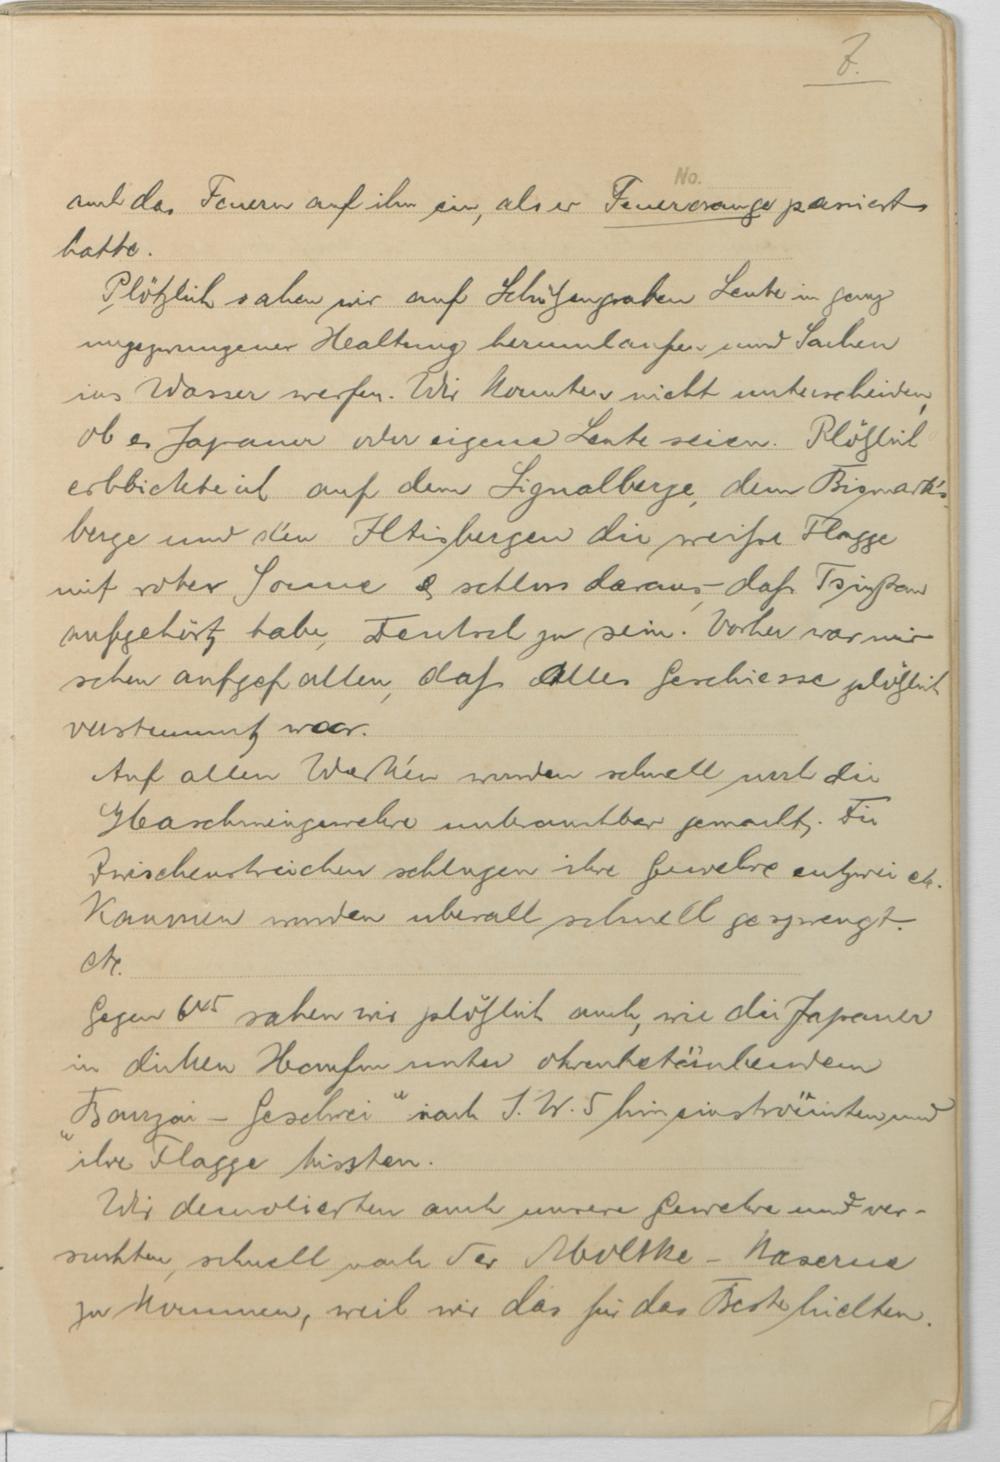 7.
No.
auch das Feuern auf ihn ein, als er Feuerorange passiert
hatte.
Plötzlich sahen wir auf Schützengraben Leute in ganz
ungezwungener Healtung herumlaufen und Sachen
ins Wasser werfen. Wir konnten nicht unterscheiden,
ob es Japaner oder eigene Leute seien. Plötzlich
erblickte ich auf dem Signalberge, dem Bismarks-
berge und den Iltisbergen die weiße Flagge
mit roter Sonne & schloss daraus, daß Tsingtau
aufgehört habe, Deutsch zu sein. Vorher war mir
schon aufgefallen, daß alles Geschiesse plötzlich
verstummt war.
Auf allen Werken wurden schnell noch die
Maschinengewehre unbrauchbar gemacht. Die
Zwischenstreichen schlugen ihre Gewehre entzwei etc.
Kanonen wurden uberall schnell gesprengt.
etc.
Gegen 6 45 sahen wir plötzlich auch, wie die Japaner
in dicken Haufen unter ohrenbetäubendem
"Banzai - Geschrei" nach I. W. 5 hineinströmten und
ihre Flagge hissten.
Wir demolierten auch unsere Gewehre und ver-
suchten, schnell nach der Moltke - Kaserne
zu kommen, weil wir das für das Beste hielten.